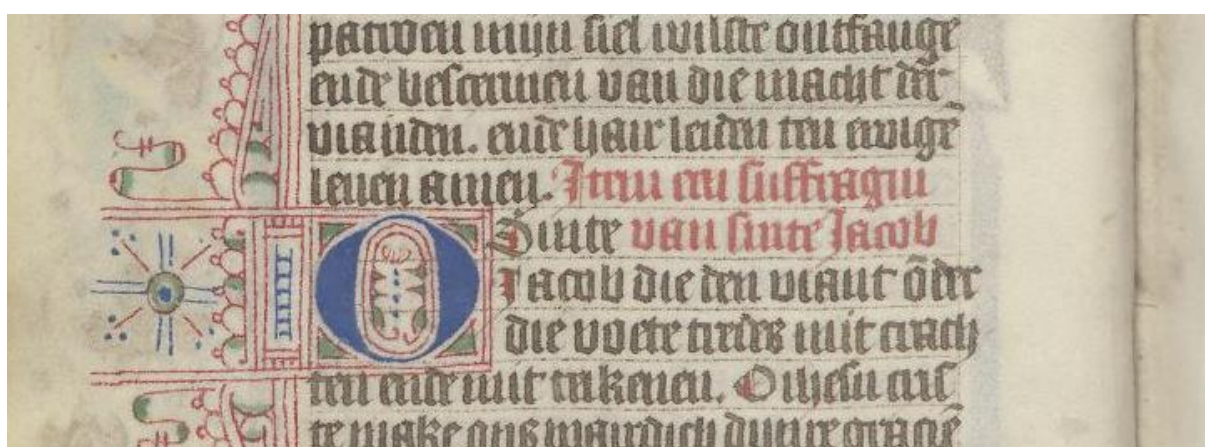 mijn siel wilste ontfange
ende bescermen van die macht der
vianden. ende hair leiden ten ewigẽ
leven amen. Item een suffragiu
O Sinte van sinte Jacob
Jacob die den viant õder
die voete tredes mit crach
ten ende mit teikenen. O ihesu cris
te make ons wairdich dijnre graciẽ